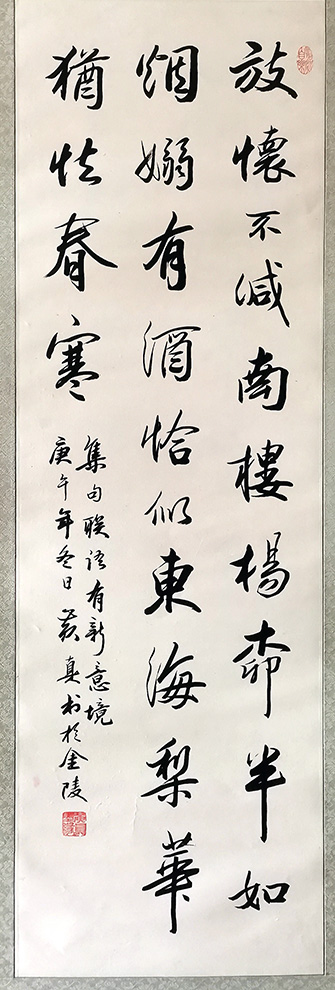 放懷不減南樓楊柳半如
烟嫋有酒恰似東海梨華
猶怯春寒
集句联语有新意境
庚午年冬日真书於金陵